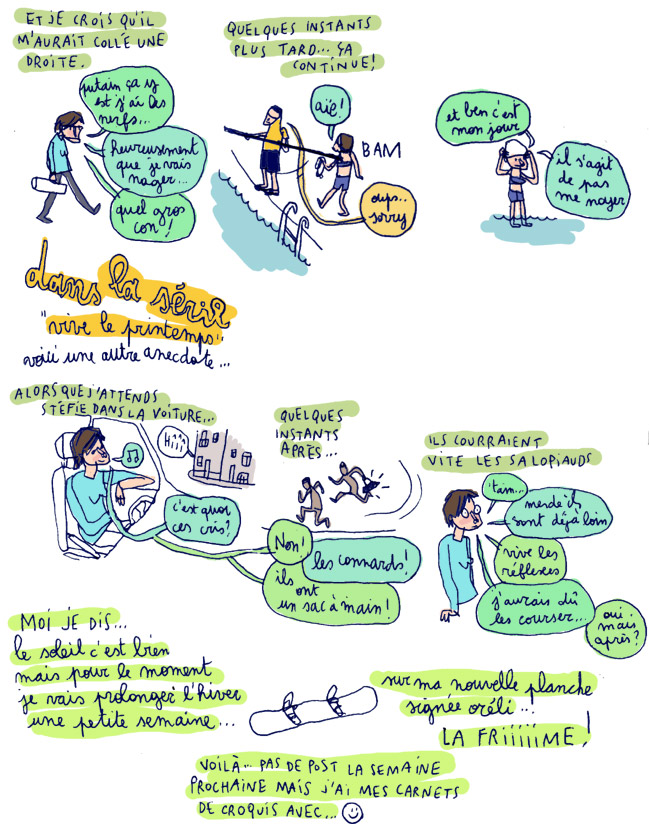 ET JE CROIS QU'IL
M'AURAIT COLLÉ UNE
DROITE.
putain ça y
est j'ai les
nerfs...
heureusement
que je vais
nager...
quel gros
con!
QUELQUES INSTANTS
PLUS TARD... ÇA
CONTINUE!
aïe!
BAM
oups..
sorry
et ben c'est
mon jour
il s'agit
de pas
me noyer
dans la série
"vive le printemps"
voici une autre anecdote...
ALORS QUE J'ATTENDS
STÉFIE DANS LA VOITURE...
Hiii
c'est quoi
ces cris?
QUELQUES
INSTANTS
APRÈS...
Non!
les connards!
ils
ont
un sac à main!
ILS COURRAIENT
VITE LES SALOPIAUDS
'tain...
merde ils
sont déjà loin
vive les
réflexes
j'aurais dû
les courser...
oui.
mais
après?
MOI JE DIS...
le soleil c'est bien
mais pour le moment
je vais prolonger l'hiver
une petite semaine...
sur ma nouvelle planche
signée oréli...
LA FRIIIIIME!
VOILÀ... PAS DE POST LA SEMAINE
PROCHAINE MAIS J'AI MES CARNETS
DE CROQUIS AVEC...